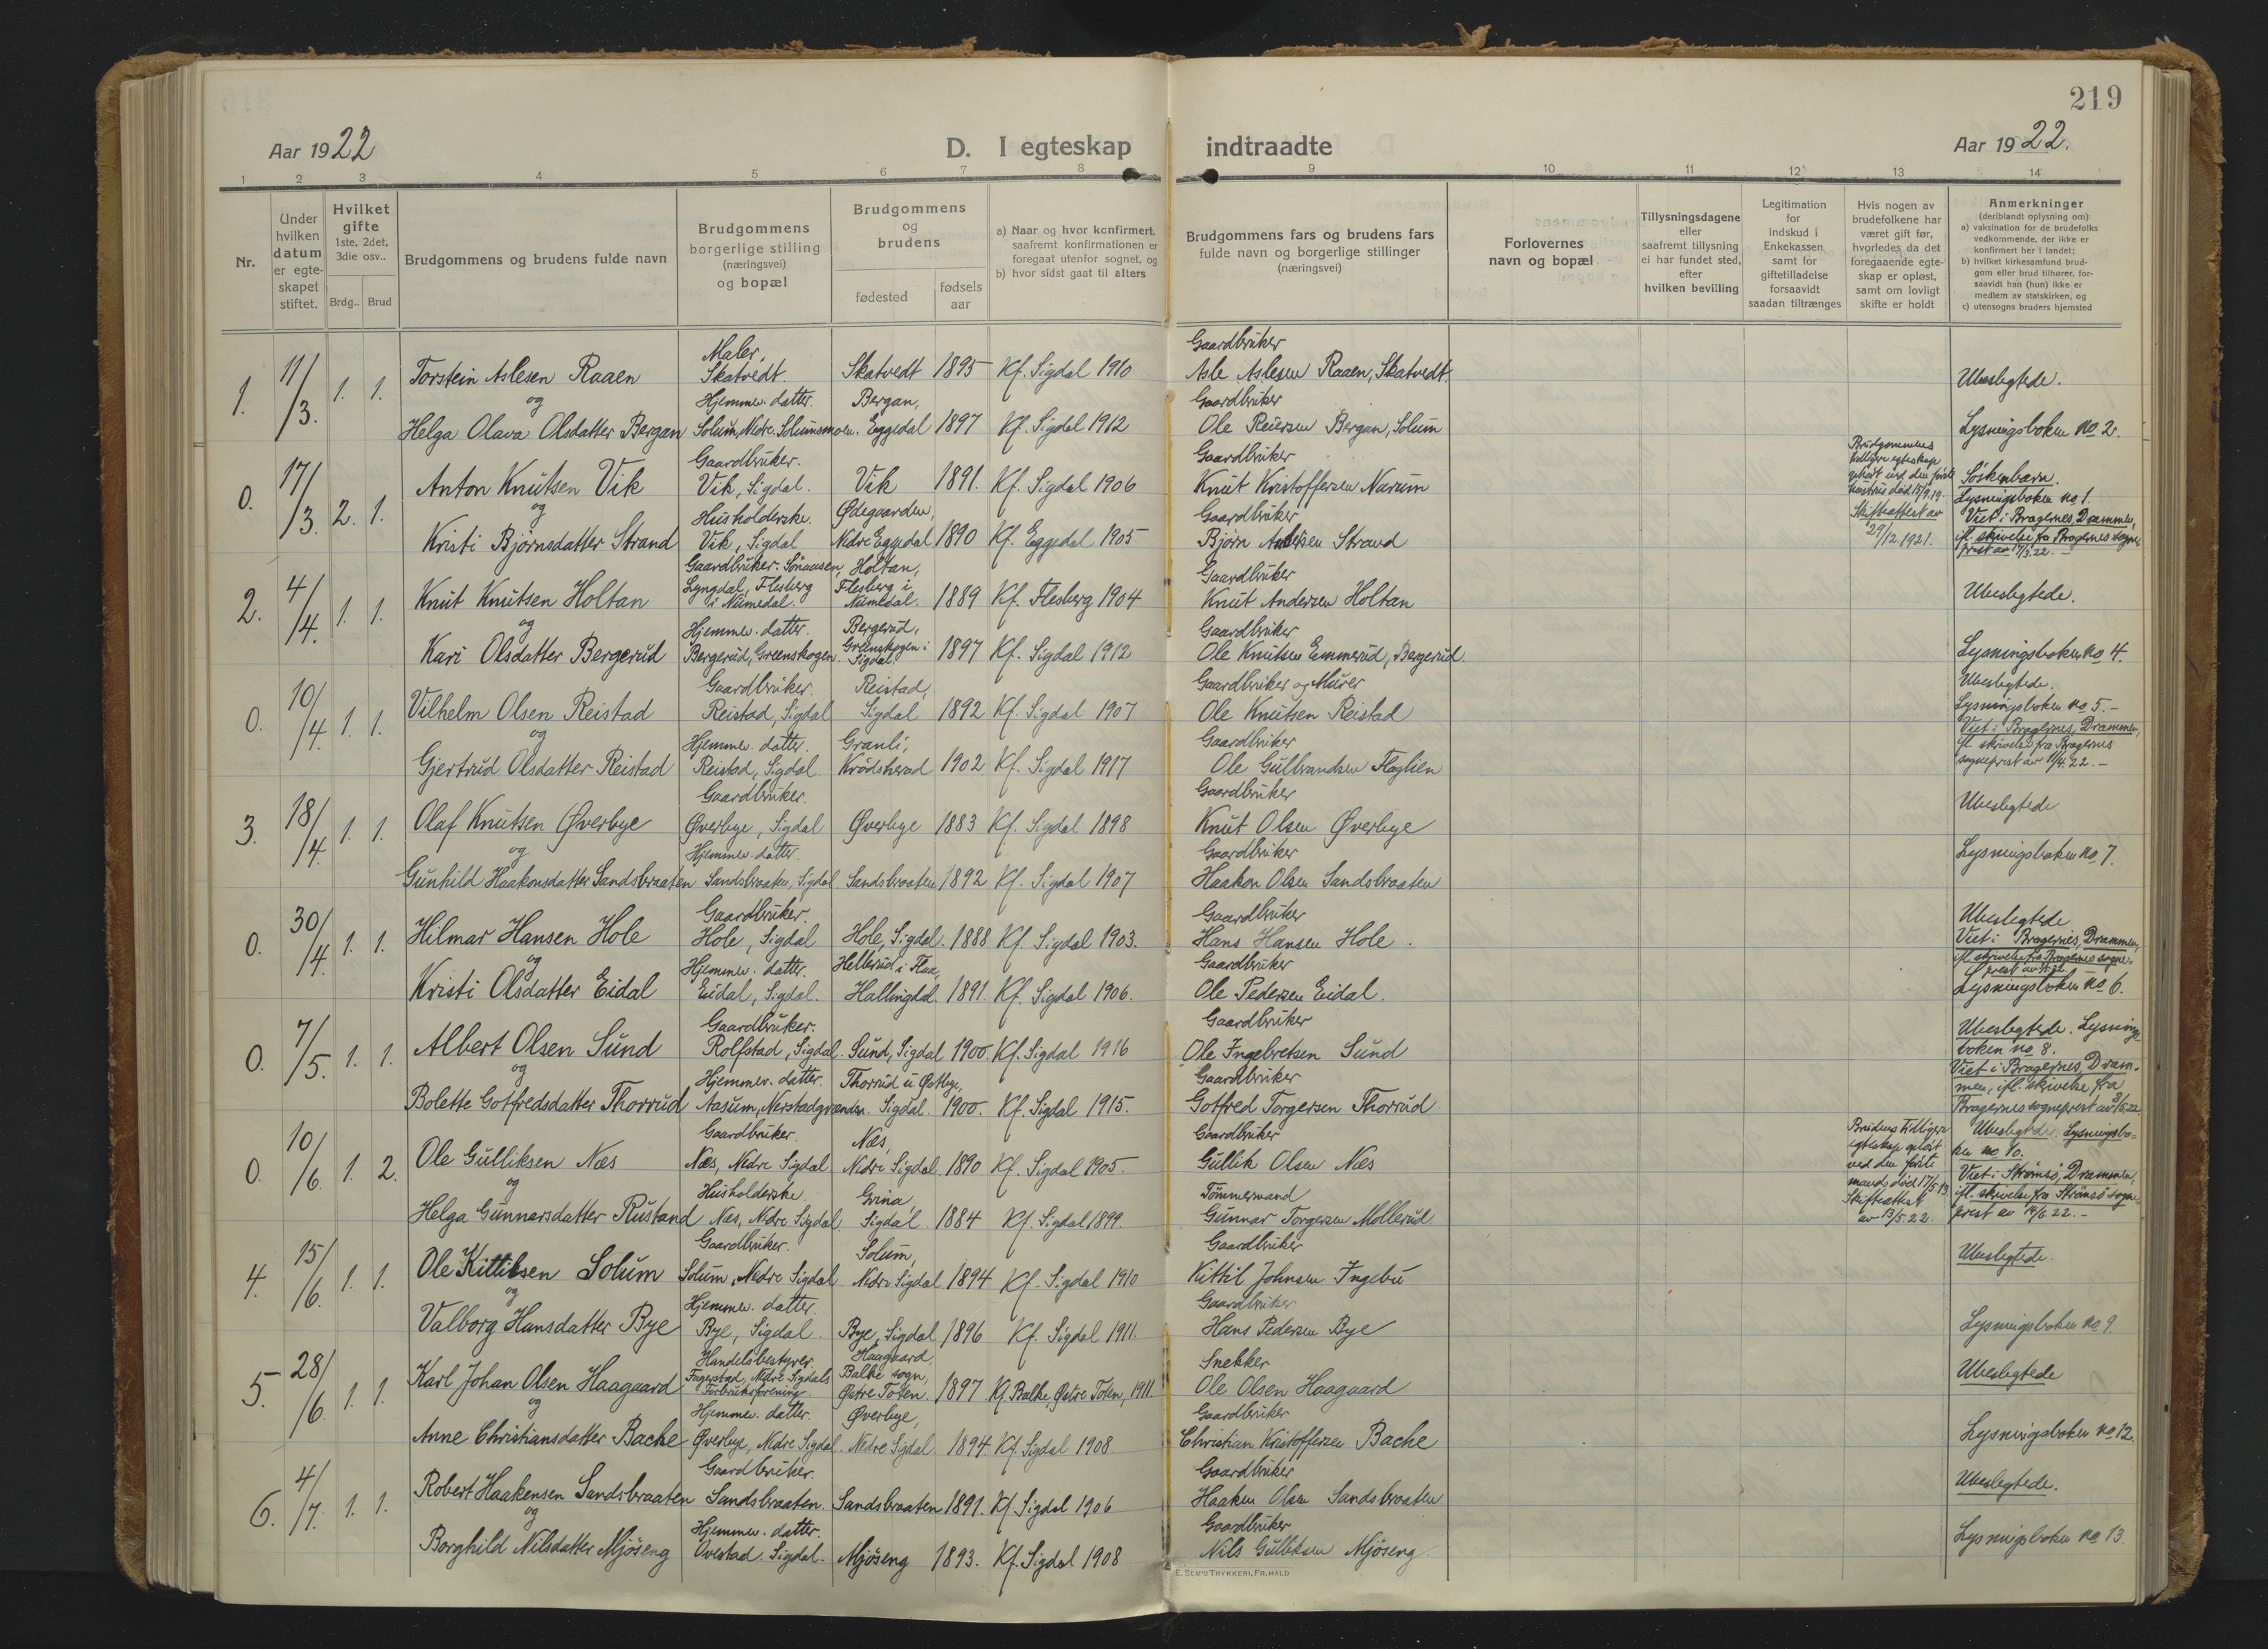 219
Aar 1922
D. I egteskap indtraadte
Aar 1922.
1 2 3 4 5 6 7 8 9 10 11 12 13 14
Nr.
Under hvilken datum er egteskapet stiftet.
Hvilket gifte 1ste, 2det, 3die osv..
Brdg.. Brud
Brudgommens og brudens fulde navn
Brudgommens borgerlige stilling (næringsvei) og bopæl
Brudgommens og brudens
fødested
fødselsaar
a) Naar og hvor konfirmert, saafremt konfirmationen er foregaat utenfor sognet, og
b) hvor sidst gaat til alters
Brudgommens fars og brudens fars fulde navn og borgerlige stillinger (næringsvei)
Forlovernes navn og bopæl
Tillysningsdagene eller saafremt tillysning ei har fundet sted, efter hvilken bevilling
Legitimation for indskud i Enkekassen samt for giftetilladelse forsaavidt saadan tiltrænges
Hvis nogen av brudefolkene har været gift før, hvorledes da det foregaaende egteskap er opløst, samt om lovligt skifte er holdt
Anmerkninger
(deriblandt oplysning om):
a) vaksination for de brudefolks vedkommende, der ikke er konfirmert her i landet;
b) hvilket kirkesamfund brudgom eller brud tilhører, forsaavidt han (hun) ikke er medlem av statskirken, og
c) utensogns bruders hjemsted
1. 11/3. 1. 1. Torstein Aslesen Raaen Maler, Skatvedt. Skatvedt 1895 Kf. Sigdal 1910 Gaardbruker Asle Aslesen Raaen, Skatvedt. Ubeslegtede.
og
Helga Olava Olsdatter Bergan Hjemmev. datter. Solum, Nedre Solumsmoen. Bergan, Eggedal 1897 Kf. Sigdal 1912 Gaardbruker Ole Reiersen Bergan, Solum Lysningsboken no 2.
0. 17/3. 2. 1. Anton Knutsen Vik Gaardbruker. Vik, Sigdal. Vik 1891. Kf. Sigdal 1906 Gaardbruker Knut Kristoffersen Narum Brudgommens tidligere egteskap opløst ved den første hustrus død 15/9.19. Skifteattest av 29/12.1921. Søskenbarn. Lysningsboken no 1. Viet i Bragernes, Drammen, ifl. skrivelse fra Bragernes sogneprest av 17/3.22. –
og
Kristi Bjørnsdatter Strand Husholderske. Vik, Sigdal Ødegaarden, Nedre Eggedal 1890 Kf. Eggedal 1905 Gaardbruker Bjørn Andersen Strand
2. 4/4. 1. 1. Knut Knutsen Holtan Gaardbruker. Lyngdal, Flesberg i Numedal. Holtan, Flesberg i Numedal. 1889 Kf. Flesberg 1904 Gaardbruker Knut Andersen Holtan Ubeslegtede.
og
Kari Olsdatter Bergerud Hjemmev. datter. Bergerud, Greenskogen. Bergerud, Greenskogen i Sigdal. 1897 Kf. Sigdal 1912 Gaardbruker Ole Knutsen Emmerud, Bergerud. Lysningsboken no 4.
0. 10/4. 1. 1. Vilhelm Olsen Reistad Gaardbruker. Reistad, Sigdal Reistad, Sigdal 1892 Kf. Sigdal 1907 Gaardbruker og Murer Ole Knutsen Reistad Ubeslegtede. Lysningsboken no 5. – Viet i Bragernes, Drammen, ifl. skrivelse fra Bragernes sogneprest av 11/4.22. –
og
Gjertrud Olsdatter Reistad Hjemmev. datter. Reistad, Sigdal. Granli, Krødsherad 1902 Kf. Sigdal 1917 Gaardbruker Ole Gulbrandsen
3. 18/4. 1. 1. Olaf Knutsen Øverbye Gaardbruker. Øverbye, Sigdal Øverbye 1883 Kf. Sigdal 1898 Gaardbruker Knut Olsen Øverbye Ubeslegtede
og
Gunhild Haakonsdatter Sandsbraaten Hjemmev. datter. Sandsbraaten, Sigdal. Sandsbraaten 1892 Kf. Sigdal 1907 Gaardbruker Haakon Olsen Sandsbraaten Lysningsboken no 7.
0. 30/4. 1. 1. Hilmar Hansen Hole Gaardbruker. Hole, Sigdal Hole, Sigdal. 1888 Kf. Sigdal 1903. Gaardbruker Hans Hansen Hole. Ubeslegtede Viet i Bragernes, Drammen, ifl. skrivelse fra Bragernes sogneprest Lysningsboken no 6.
og
Kristi Olsdatter Eidal Hjemmev. datter. Eidal, Sigdal. Hellerud i Flaa, Hallingdal. 1891 Kf. Sigdal 1906. Gaardbruker Ole Pedersen Eidal.
0. 7/5. 1. 1. Albert Olsen Sund Gaardbruker. Rolfstad, Sigdal. Sund, Sigdal 1900. Kf. Sigdal 1916 Gaardbruker Ole Ingebretsen Sund Ubeslegtede. Lysningsboken no 8. Viet i Bragernes, Drammen, ifl. skrivelse fra Bragernes sogneprest av 8/5.22.
og
Bolette Gotfredsdatter Thorrud Hjemmev. datter. Aasum, Nerstadgrænden. Thorrud u. Østbye, Sigdal. 1900. Kf. Sigdal 1915. Gaardbruker Gotfred Torgersen Thorrud
0. 10/6. 1. 2. Ole Gulliksen Næs Gaardbruker. Næs, Nedre Sigdal Næs, Nedre Sigdal 1890 Kf. Sigdal 1905. Gaardbruker Gullik Olsen Næs Brudens tidligere egteskap opløst ved den første mands død 17/5.13. Skifteattest av 13/5.22. Ubeslegtede. Lysningsboken no 10. Viet i Strømsø, Drammen, ifl. skrivelse fra Strømsø sogneprest av 14/6.22. –
og
Helga Gunnarsdatter Rustand Husholderske. Næs, Nedre Sigdal Grina, Sigdal 1884 Kf. Sigdal 1899. Tømmermand Gunnar Torgersen Møllerud
4. 15/6. 1. 1. Ole Kittilsen Solum Gaardbruker. Solum, Nedre Sigdal Solum, Nedre Sigdal 1894 Kf. Sigdal 1910 Gaardbruker Kittil Johnsen Ingebu Ubeslegtede.
og
Valborg Hansdatter Bye Hjemmev. datter. Bye, Sigdal. Bye, Sigdal 1896 Kf. Sigdal 1911. Gaardbruker Hans Pedersen Bye Lysningsboken no 9.
5. 28/6. 1. 1. Karl Johan Olsen Haagaard Handelsbestyrer. Fagerstad, Nedre Sigdals Forbruksforening. Haagaard, Balke sogn, Østre Toten. 1897 Kf. Balke, Østre Toten, 1911. Snekker Ole Olsen Haagaard Ubeslegtede
og
Anne Christiansdatter Bache Hjemmev. datter. Øverbye, Nedre Sigdal. Øverbye, Nedre Sigdal 1894. Kf. Sigdal 1908 Gaardbruker Christian Kristoffersen Bache Lysningsboken no 12.
6. 4/7. 1. 1. Robert Haakensen Sandsbraaten Gaardbruker. Sandsbraaten. Sandsbraaten 1891. Kf. Sigdal 1906 Gaardbruker Haaken Olsen Sandsbraaten Ubeslegtede.
og
Borghild Nilsdatter Mjøseng Hjemmev. datter. Ovestad. Sigdal. Mjøseng 1893. Kf. Sigdal 1908 Gaardbruker Nils Gulliksen Mjøseng. Lysningsboken no 13.
E. SEM'S TRYKKERI, FR.HALD